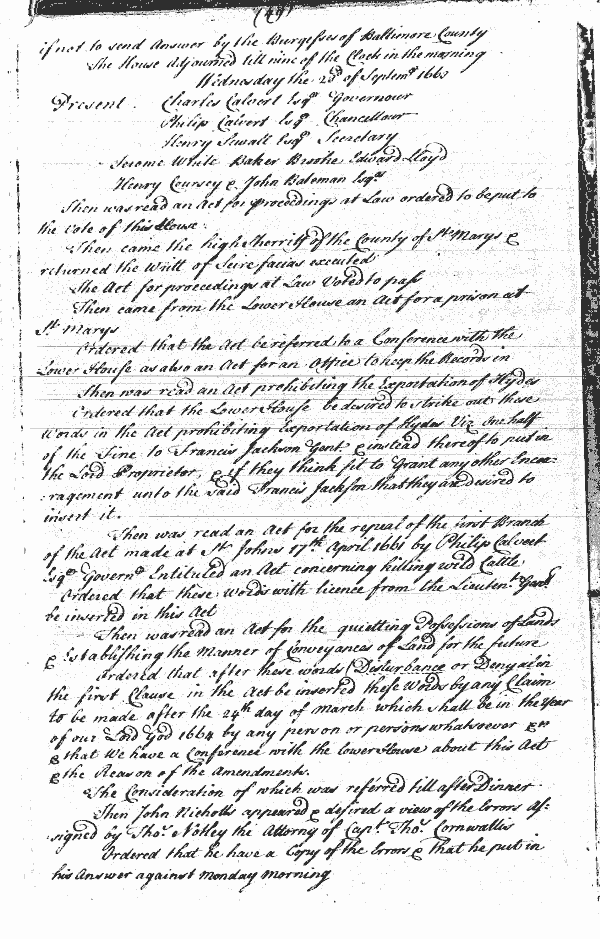 (49)
if not to send Answer by the Burgesses of Baltimore County
The House adjourned till nine of the Clock in the morning
Wednesday the 23d of Septemr 1663
Present. Charles Calvert Esqr Governour
Philip Calvert Esqr Chancellour
Henry Sewall Esqr Secretary
Jerome White Baker Brooke Edward Lloyd
Henry Coursey & John Bateman Esqrs
Then was read an Act for proceedings at Law ordered to be put to
the Vote of this House.
Then came the high Sherriff of the County of St Marys &
returned the Writt of Scire facias executed
The Act for proceedings at Law Voted to pass
Then came from the Lower House an Act for a prison att
St Marys
Ordered that the Act be referred to a Conference with the
Lower House as also an Act for an Office to keep the Records in
Then was read an Act prohibiting the Exportation of Hydes
Ordered that the Lower House be desired to strike out these
Words in the Act prohibiting Exportation of Hydes Viz one half
of the Fine to Francis Jackson Gent. & instead thereof to put in
the Lord Proprietor, & if they think fit to Grant any other Encou:
:ragement unto the said Francis Jackson that they are desired to
insert it.
Then was read an Act for the repeal of the first Branch
of the Act made at St Johns 17th April 1661 by Philip Calvert
Esqr Governr Entituled an Act concerning killing wild Cattle
Ordered that these words with licence from the Lieutent Genll
be inserted in this Act
Then was read an Act for the quietting Possessions of Lands
& Establishing the Manner of Conveyances of Land for the future
Ordered that after these words (Disturbance or Denyal in
the first Clause in the Act be inserted these Words by any Claim
to be made after the 24th day of March which shall be in the Year
of our Lord God 1664 by any person or persons whatsoever &ca
& that We have a Conference with the Lower House about this Act
& the Reason of the Amendments.
The Consideration of which was referred till after Dinner
Then John Nicholls appeared & desired a view of the Errors as:
signed by Thos Notley the Attorny of Capt Thos Cornwallis
Ordered that he have a Copy of the Errors & that he put in
his Answer against Monday Morning